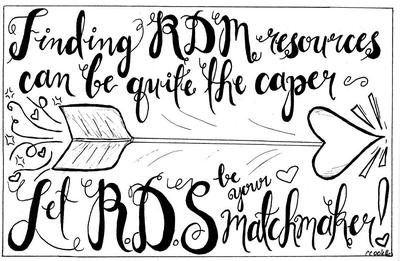 Finding RDM resources
can be quite the caper
Let R.D.S be your matchmaker!